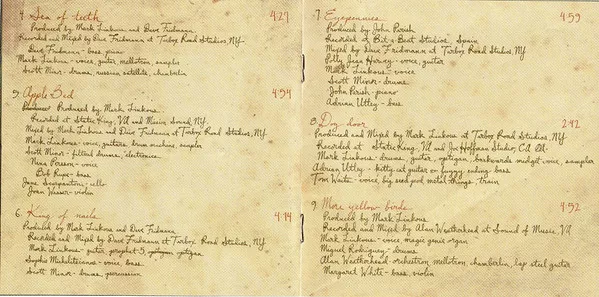 4. Sea of teeth 4:27
Produced by Mark Linkous and Dave Fridmann
Recorded and Mixed by Dave Fridmann at Tarbox Road Studios, NY
Dave Fridmann - bass, piano
Mark Linkous - voice, guitar, mellotron, sampler
Scott Minor - drums, russian satellite, chamberlin
5. Apple Bed 4:54
Produced by Mark Linkous
Recorded at Static King, VA and Maison Sound, NY
Mixed by Mark Linkous and Dave Fridmann at Tarbox Road Studios, NY
Mark Linkous - voice, guitars, drum machine, sampler
Scott Minor - filtered drums, electronics
Nina Persson - voice
Bob Rupe - bass
Jane Scarpantoni - cello
Joan Wasser - violin
6. King of nails 4:14
Produced by Mark Linkous and Dave Fridmann
Recorded and Mixed by Dave Fridmann at Tarbox Road Studios, NY
Mark Linkous - guitar, prophet-5, optigan
Sophie Michalitsianos - voice, bass
Scott Minor - drums, percussion
7. Eyepennies 4:59
Produced by John Parish
Recorded at Bit-Beat Studios, Spain
Mixed by Dave Fridmann at Tarbox Road Studios, NY
Polly Jean Harvey - voice, guitar
Mark Linkous - voice
Scott Minor - drums
John Parish - piano
Adrian Utley - bass
8. Dog door 2:42
Produced and Mixed by Mark Linkous at Tarbox Road Studios, NY
Recorded at Static King, VA and Joe Hoffman Studios, CA
Mark Linkous - drums, guitar, optigan, backwards midget voice, sampler
Adrian Utley - kitty cat guitar
Tom Waits - voice, big seed pod, metal things, train
9. More yellow birds 4:52
Produced by Mark Linkous
Recorded and Mixed by Alan Weatherhead at Sound of Music, VA
Mark Linkous - voice, magic genie organ
Miguel Rodriguez - drums
Alan Weatherhead - orchestron, mellotron, chamberlin, lap steel guitar
Margaret White - bass, violin